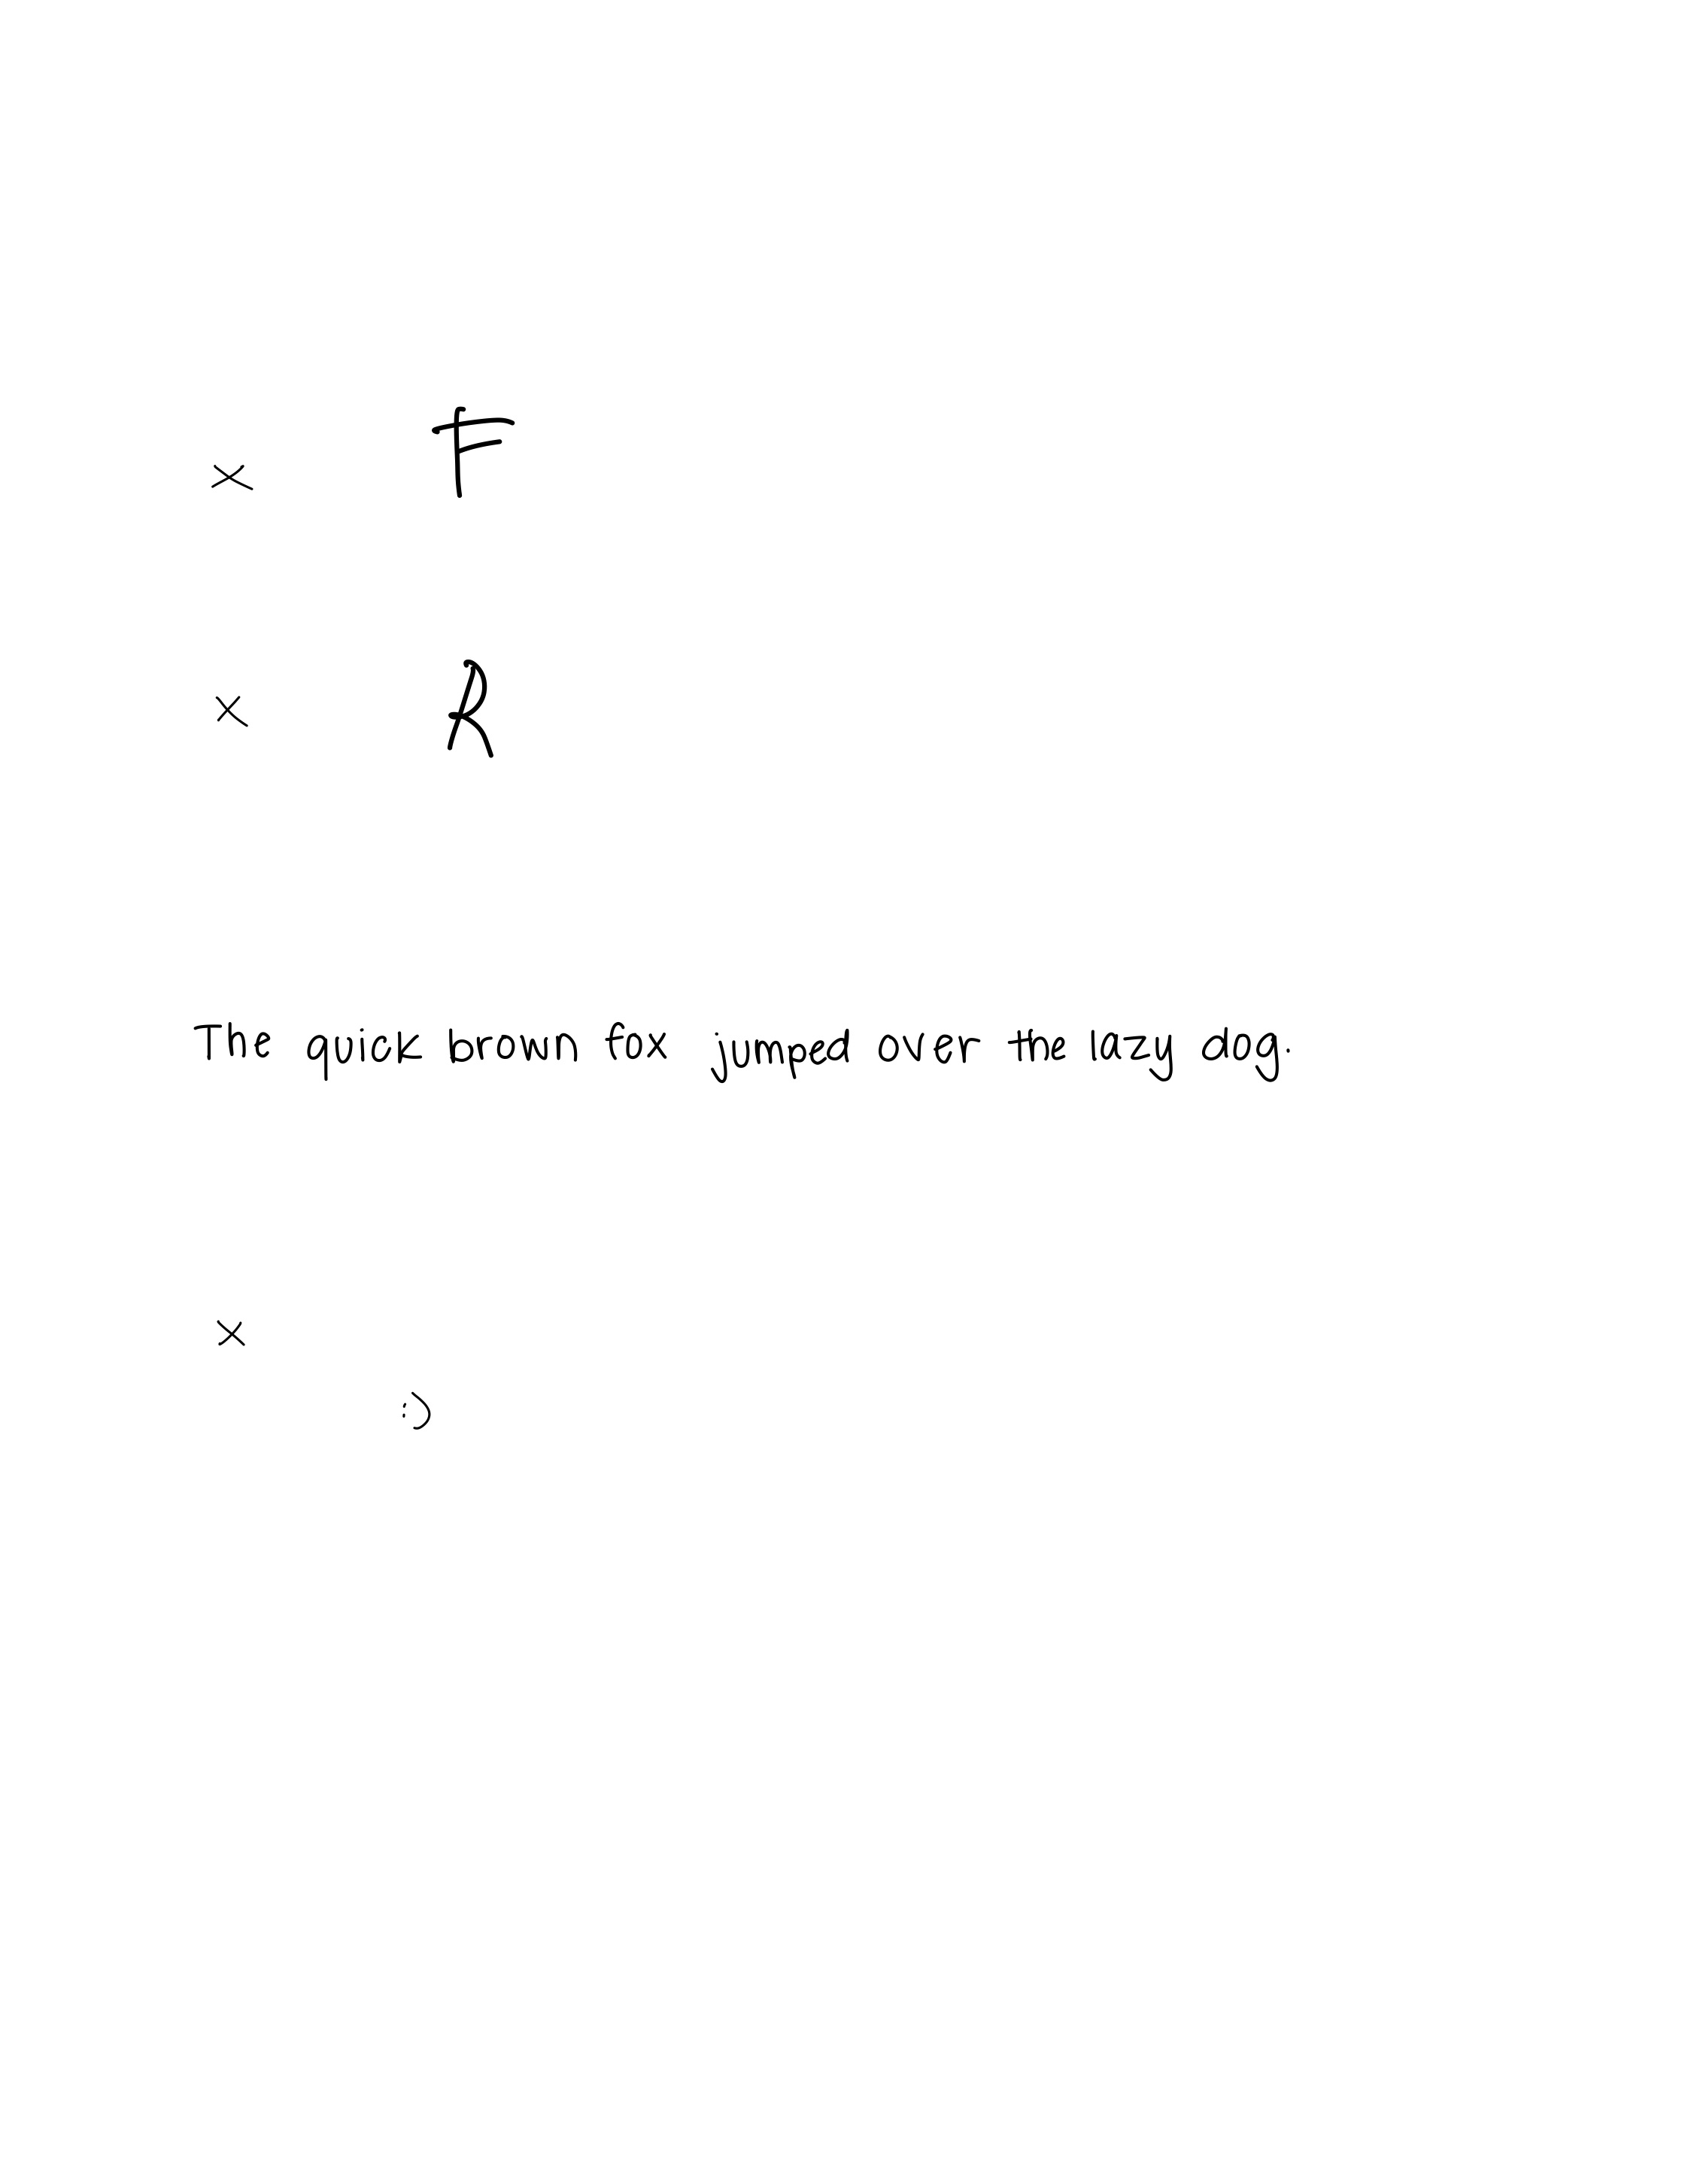 x F
x R
The quick brown fox jumped over the lazy dog.
x
:)